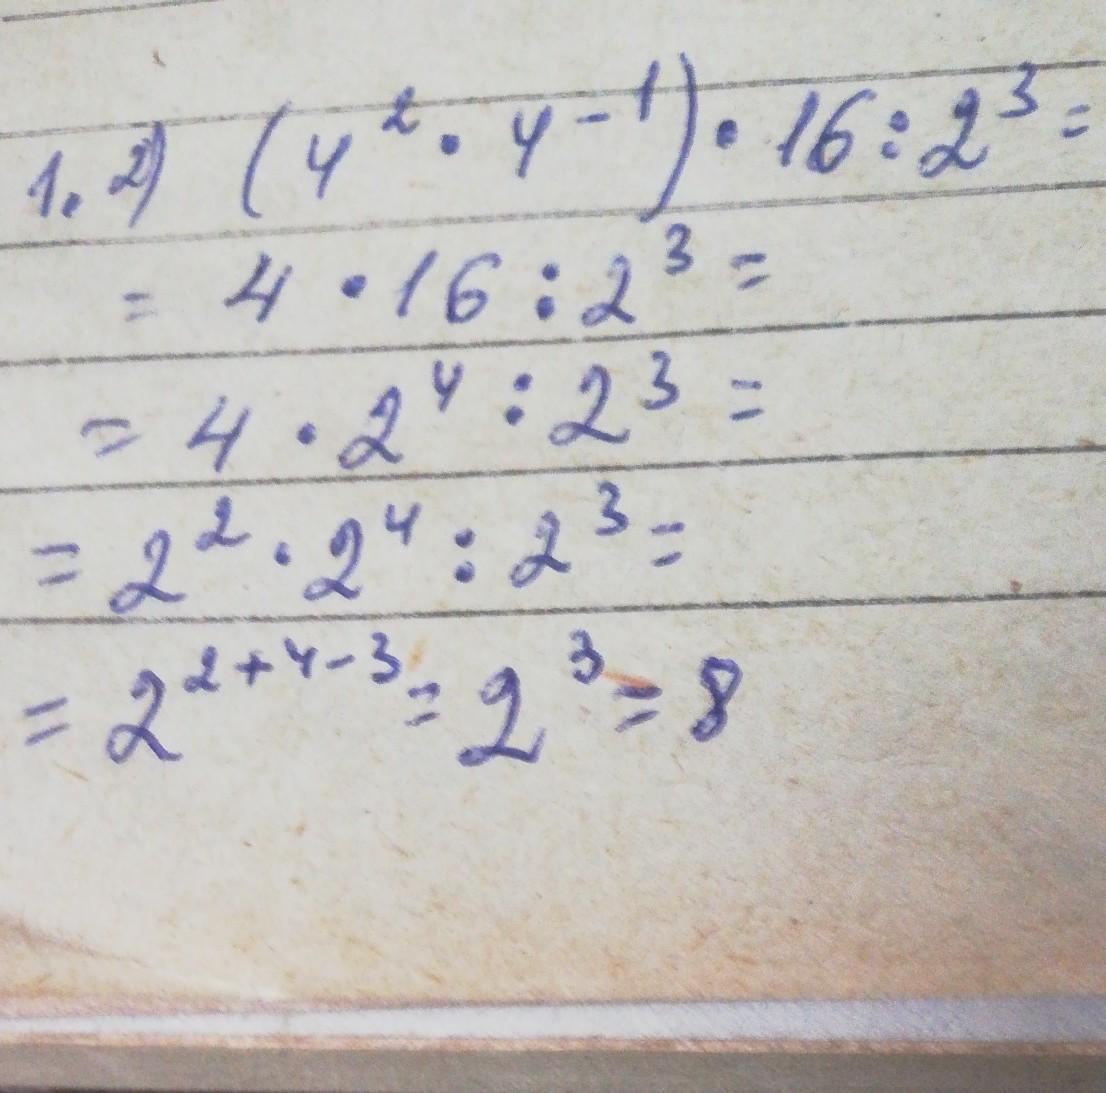 1. 2) (4² · 4⁻¹) · 16 : 2³ =
= 4 · 16 : 2³ =
= 4 · 2⁴ : 2³ =
= 2² · 2⁴ : 2³ =
= 2²⁺⁴⁻³ = 2³ = 8